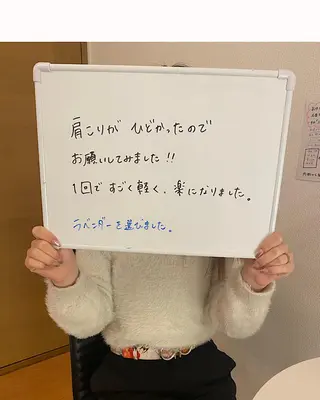 肩こりが ひどかったので
お願いしてみました!!
1回で すごく軽く、楽になりました。
ラベンダーを選びました。